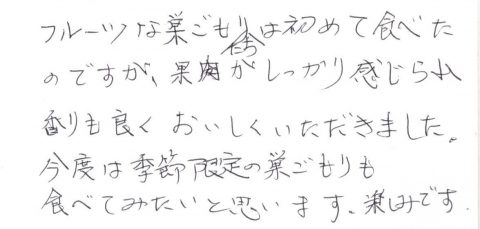 フルーツな巣ごもりは初めて食べた
のですが、果肉がしっかり感じられ
香りも良くおいしくいただきました。
今度は季節限定の巣ごもりも
食べてみたいと思います、楽しみです.